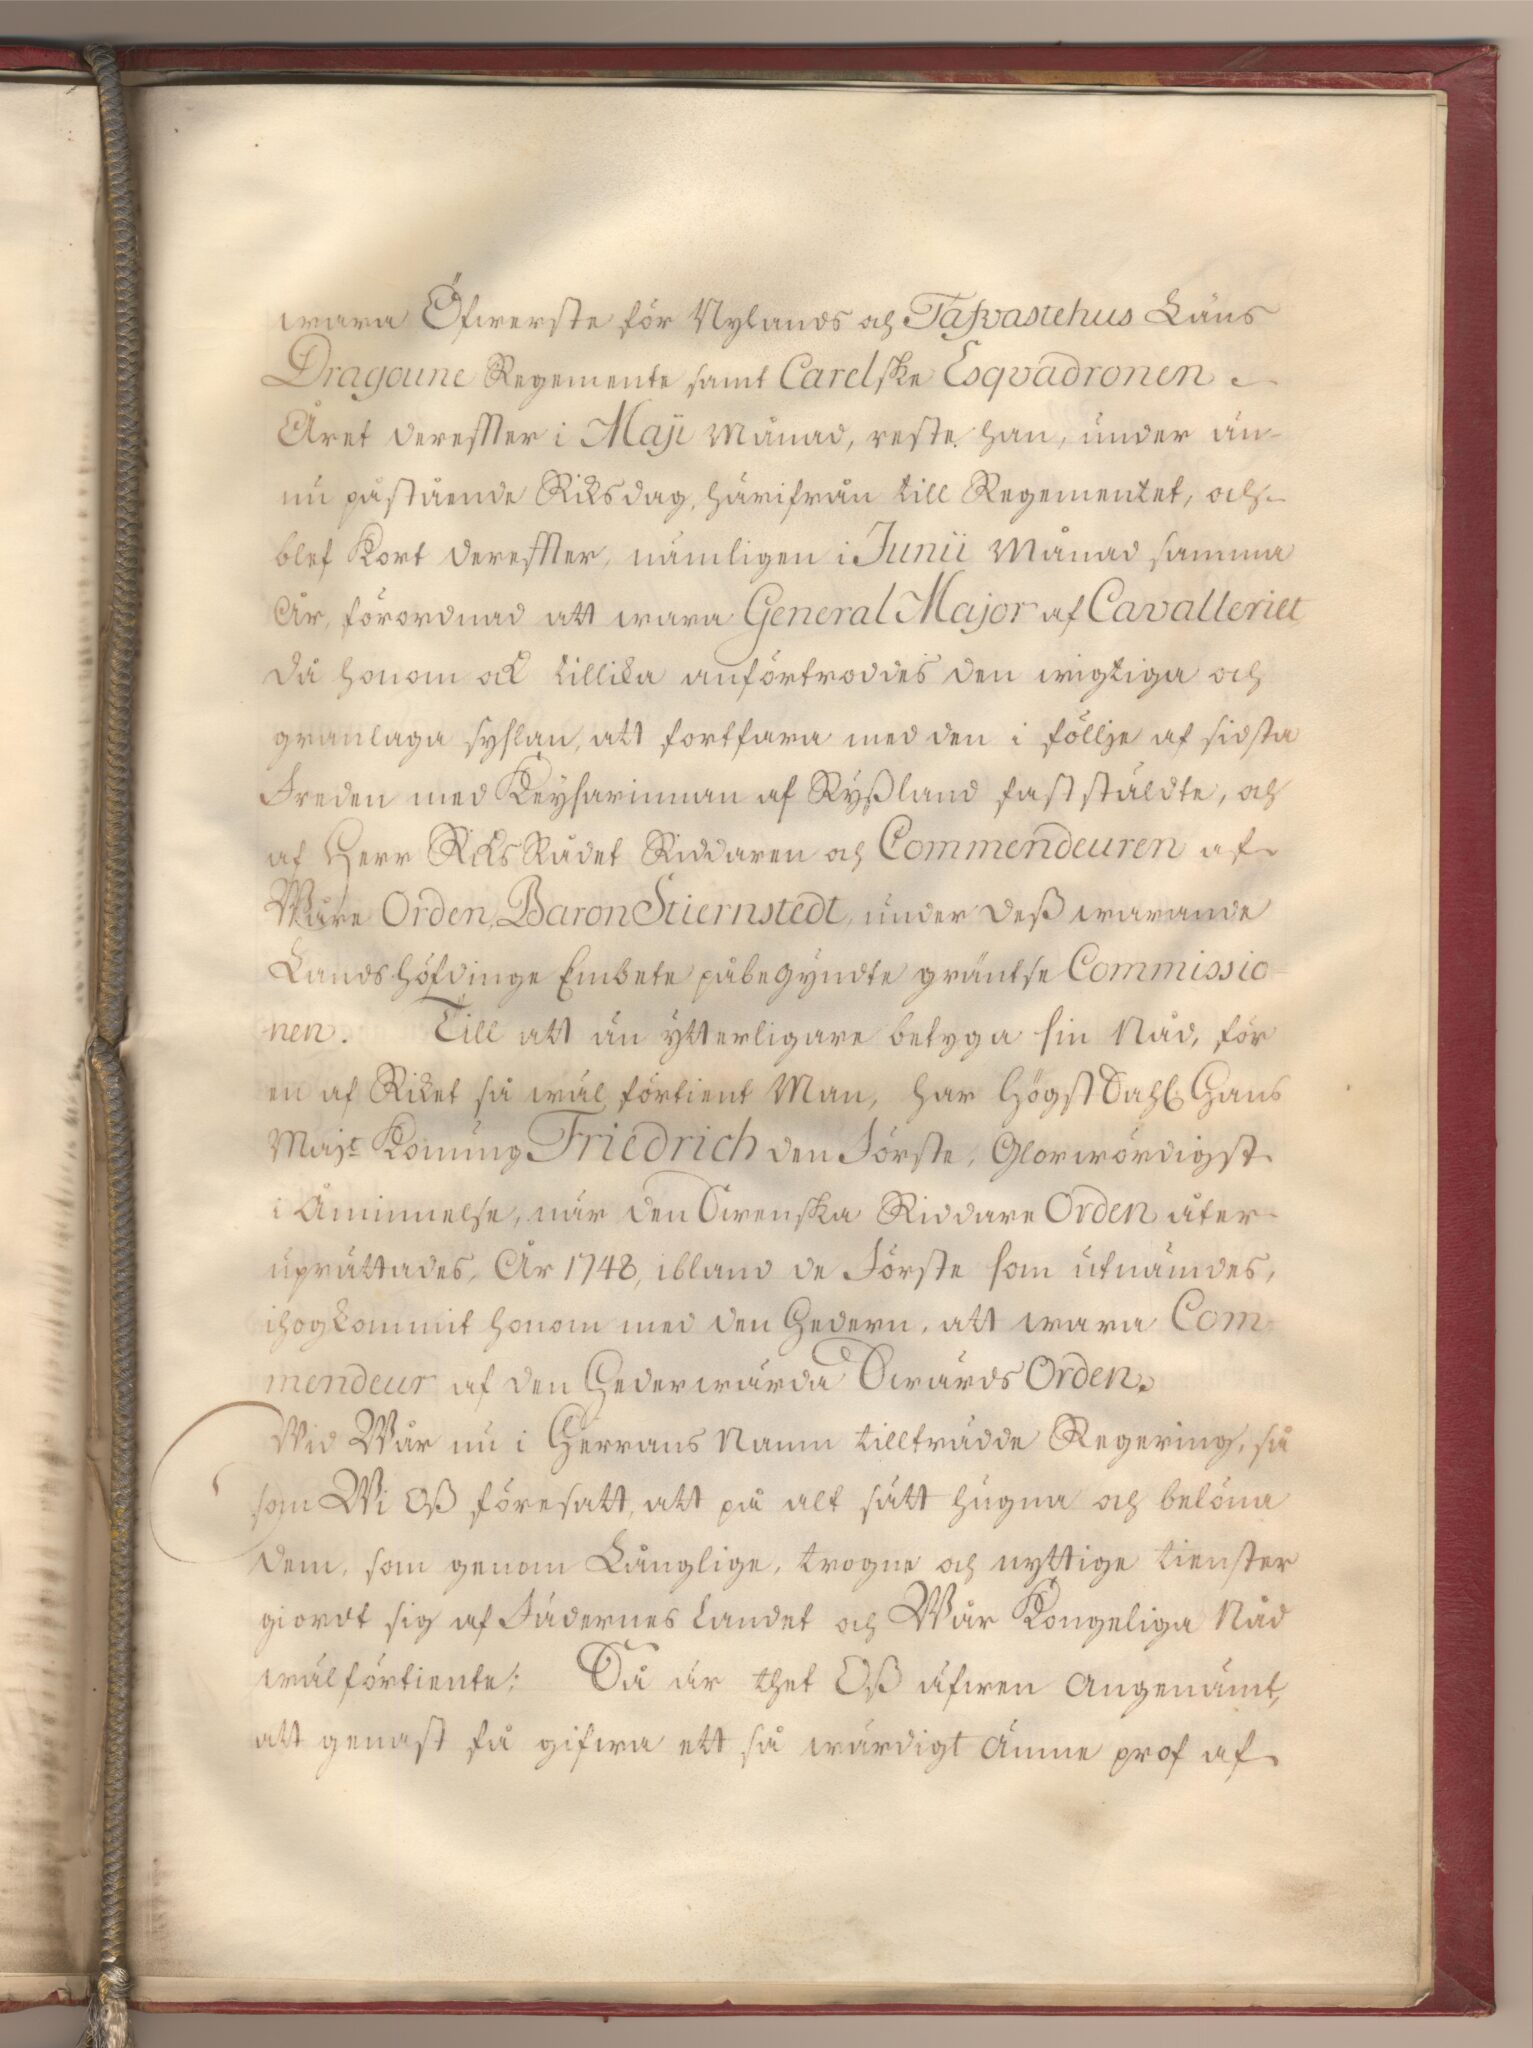 wara Öfwerste för Nylands och Tafvastehus Läns
Dragoune Regemente samt Carelske Esqvadronen
Året derefter i Maji Månad, reste han, under än-
nu påstående Riksdag, härifrån till Regementet, och
blef kort derefter, nämligen i Junii Månad samma
År, förordnad att wara General Major af Cavalleriet,
då honom ock tillika anförtroddes den wigtiga och
granlaga syslan, att fortfara med den i föllje af sidsta
Freden med Keysarinnan af Ryßland faststäldte, och
af Herr RiksRådet Riddaren och Commendeuren af
Wåre Orden, Baron Stiernstedt, under deß warande
Landshöfdinge Embete påbegyndte gräntse Commissio-
nen. Till att än ytterligare betyga sin Nåd, för
en af Riket så wäl förtient Man, har HögstSahl. Hans
Maj:t Konung Friedrich den Förste, Glorwördigst
i Åminnelse, när den Swenska Riddare Orden åter
uprättades, År 1748, ibland de Förste som utnämdes,
ihogkommit honom med den Hedern, att wara Com-
mendeur af den Hederwärda Swärds Orden.
Wid Wår nu i Herrans Namn tillträdde Regering, så
som Wi Oß föresatt, att på alt sätt hugna och belöna
dem, som genom Långlige, trogne och nyttige tienster
giordt sig af Fädernes Landet och Wår Kongeliga Nåd
wälförtiente: Så är thet Oß äfwen Angenämt,
att genast få gifwa ett så wärdigt Ämne prof af